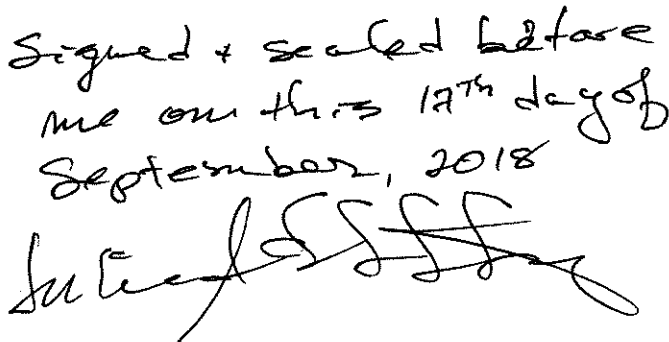 Signed + sealed before
me on this 17th day of
September, 2018